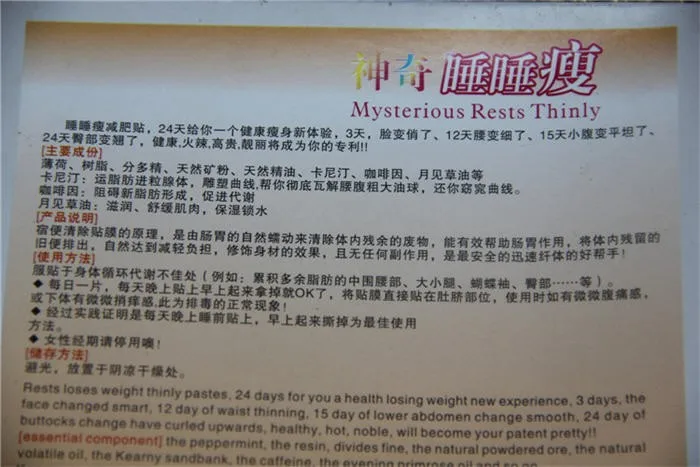 神奇 睡睡瘦
Mysterious Rests Thinly
睡睡瘦减肥贴，24天给你一个健康瘦身新体验，3天，脸变俏了、12天腰变细了、15天小腹变平坦了、
24天臀部变翘了，健康,火辣,高贵,靓丽将成为你的专利!!
[主要成份]
薄荷、树脂、分多精、天然矿粉、天然精油、卡尼汀、咖啡因、月见草油等
卡尼汀：运脂肪进粒腺体，雕塑曲线,帮你彻底瓦解腰腹粗大油球，还你窈窕曲线。
咖啡因：阻碍新脂肪形成，促进代谢
月见草油：滋润、舒缓肌肉，保湿锁水
[产品说明]
宿便清除贴膜的原理，是由肠胃的自然蠕动来清除体内残余的废物，能有效帮助肠胃作用，将体内残留的
旧便排出，自然达到减轻负担，修饰身材的效果，且无任何副作用，是最安全的迅速纤体的好帮手!
[使用方法]
服贴于身体循环代谢不佳处（例如：累积多余脂肪的中围腰部、大小腿、蝴蝶袖、臀部……等）。
◆ 每日一片，每天晚上贴上早上起来拿掉就OK了，将贴膜直接贴在肚脐部位，使用时如有微微腹痛感，
或下体有微微搔痒感,此为排毒的正常现象!
◆ 经过实践证明是每天晚上睡前贴上，早上起来撕掉为最佳使用
方法。
◆ 女性经期请停用噢!
[储存方法]
避光，放置于阴凉干燥处。
Rests loses weight thinly pastes, 24 days for you a health losing weight new experience, 3 days, the
face changed smart, 12 day of waist thinning, 15 day of lower abdomen change smooth, 24 day of
buttocks change have curled upwards, healthy, hot, noble, will become your patent pretty!!
[essential component] the peppermint, the resin, divides fine, the natural powdered ore, the natural
volatile oil, the Kearny sandbank, the caffeine, the evening primrose oil and so on